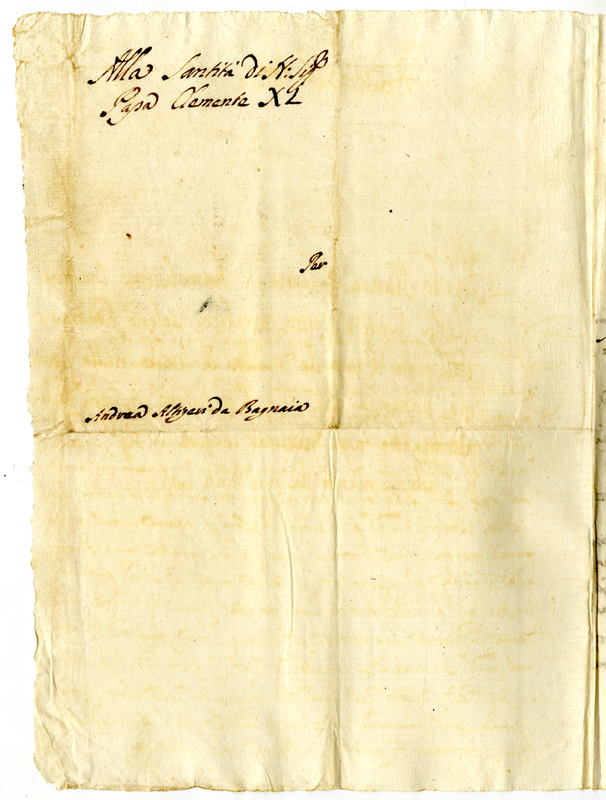 Alla Santità di N: Sig.re
Papa Clemente XI
Per
Andrea da Bagnaia